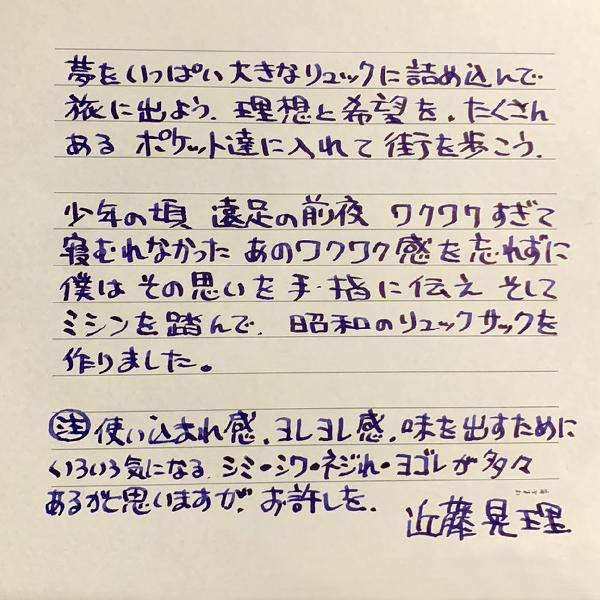 夢をいっぱい大きなリュックに詰め込んで
旅に出よう. 理想と希望を. たくさん
ある ポケット達に入れて街を歩こう.
少年の頃 遠足の前夜 ワクワクすぎて
寝むれなかった あのワクワク感を忘れずに
僕は その思いを 手・指に伝え そして
ミシンを踏んで. 昭和のリュックサックを
作りました。
注 使い込まれ感. ヨレヨレ感. 味を出すために
いろいろ気になる. シミ・シワ・ネジれ・ヨゴレが多々
あるかと思いますが. お許しを.
近藤晃理